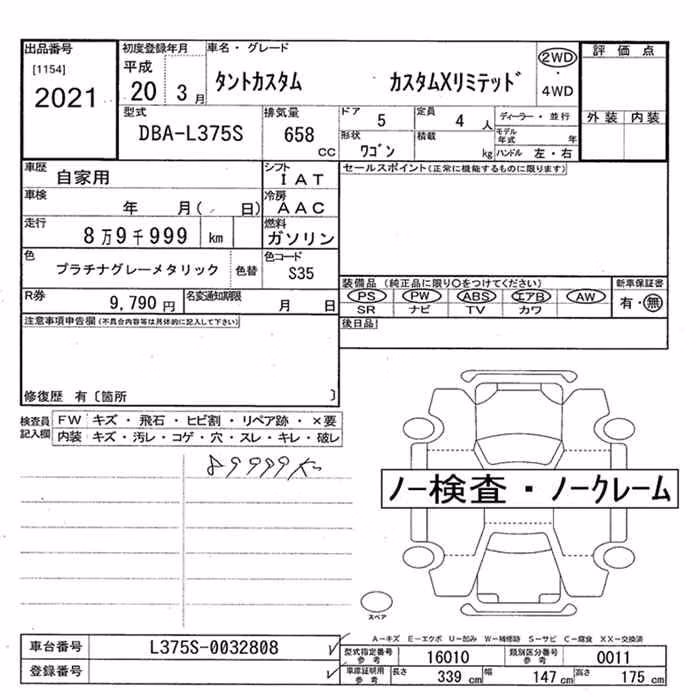 出品番号
[1154]
2021
初度登録年月
平成
20 3月
車名・グレード
タントカスタム カスタムXリミテッド
2WD
・
4WD
評価点
外装 内装
型式
DBA-L375S
排気量
658
CC
ドア
5
定員
4 人
ディーラー・並行
形状
ワゴン
積載
kg
モデル年式 年
ハンドル 左・右
車歴
自家用
シフト
IAT
車検
年 月( 日)
冷房
AAC
走行
8万9千999 km
燃料
ガソリン
色
プラチナグレーメタリック
色替
色コード
S35
R券
9,790 円
名変通知期限
月 日
セールスポイント(正常に機能するものに限ります)
装備品 (純正品に限り○をつけてください)
PS PW ABS エアB AW
SR ナビ TV カワ
新車保証書
有・無
後日品
注意事項申告欄(不具合内容等は具体的に記入して下さい)
修復歴 有〔箇所 〕
検査員記入欄
FW キズ・飛石・ヒビ割・リペア跡・×要
内装 キズ・汚レ・コゲ・穴・スレ・キレ・破レ
89999K
ノー検査・ノークレーム
スペア
A−キズ E−エクボ U−凹み W−補修跡 S−サビ C−腐食 XX−交換済
車台番号
L375S-0032808
登録番号
型式指定番号参考
16010
類別区分番号参考
0011
車庫証明用参考
長さ 339 cm 幅 147 cm 高さ 175 cm